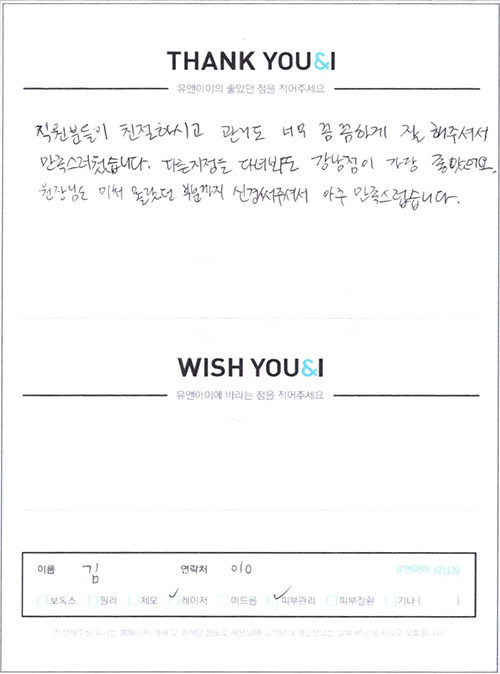 THANK YOU&I
유앤아이의 좋았던 점을 적어주세요
직원분들이 친절하시고 관리도 너무 꼼꼼하게 잘 해주셔서
만족스러웠습니다. 다른지점들 다녀봐도 강남점이 가장 좋았어요.
원장님도 미처 몰랐던 부분까지 신경써주셔서 아주 만족스럽습니다.
WISH YOU&I
유앤아이에 바라는 점을 적어주세요
이름 김 연락처 010 유앤아이 강남점
보톡스 필러 제모 레이저 여드름 피부관리 피부질환 기타 ( )